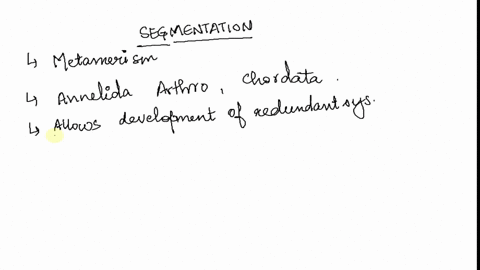 SEGMENTATION
↳ Metamerism
↳ Annelida Arthro, Chordata.
↳ Allows development of redundant sys.